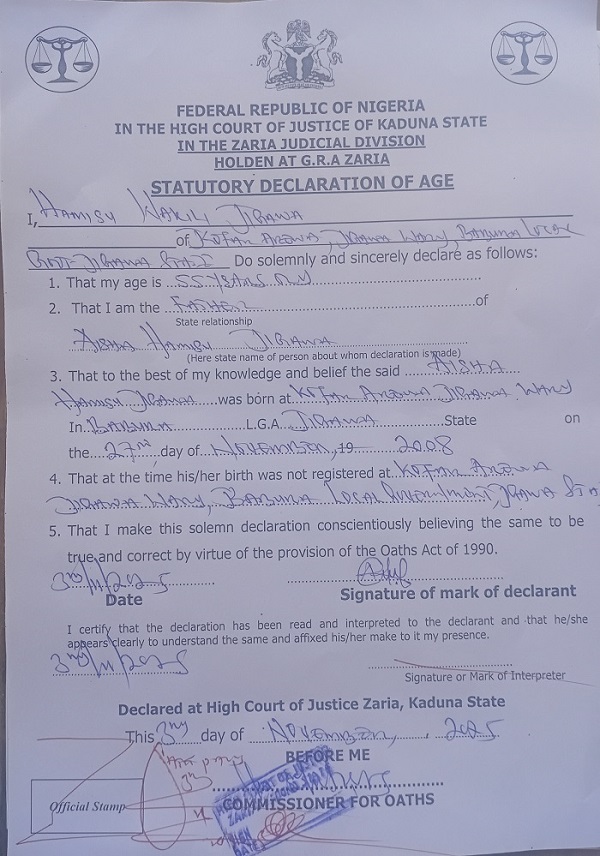 FEDERAL REPUBLIC OF NIGERIA
IN THE HIGH COURT OF JUSTICE OF KADUNA STATE
IN THE ZARIA JUDICIAL DIVISION
HOLDEN AT G.R.A ZARIA
STATUTORY DECLARATION OF AGE
I, HAMISU WAKILI JIGAWA
of KOFAR AREWA, JIGAWA WARD, BABURA LOCAL
GOVT-JIGAWA STATE Do solemnly and sincerely declare as follows:
1. That my age is 55 YEARS OLD
2. That I am the FATHER of
State relationship
AISHA HAMISU JIGAWA
(Here state name of person about whom declaration is made)
3. That to the best of my knowledge and belief the said AISHA
HAMISU JIGAWA was born at KOFAR AREWA JIGAWA WARD
In BABURA L.G.A JIGAWA State on
the 27TH day of NOVEMBER, 19 2008
4. That at the time his/her birth was not registered at KOFAR AREWA
JIGAWA WARD, BABURA LOCAL GOVERNMENT, JIGAWA STA
5. That I make this solemn declaration conscientiously believing the same to be
true and correct by virtue of the provision of the Oaths Act of 1990.
3RD/11/2025
Date Signature of mark of declarant
I certify that the declaration has been read and interpreted to the declarant and that he/she
appears clearly to understand the same and affixed his/her make to it my presence.
3RD/11/2025
Signature or Mark of Interpreter
Declared at High Court of Justice Zaria, Kaduna State
This 3RD day of NOVEMBER, 2025
BEFORE ME
COMMISSIONER FOR OATHS
Official Stamp